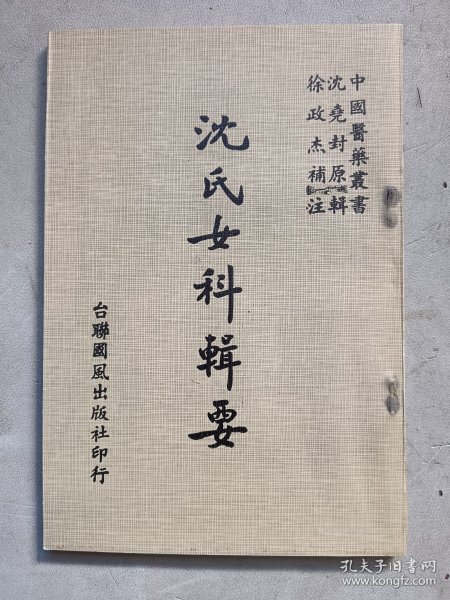 中國醫藥叢書
沈堯封原輯
徐政杰補注
沈氏女科輯要
台聯國風出版社印行
孔夫子旧书网
www.kongfz.com